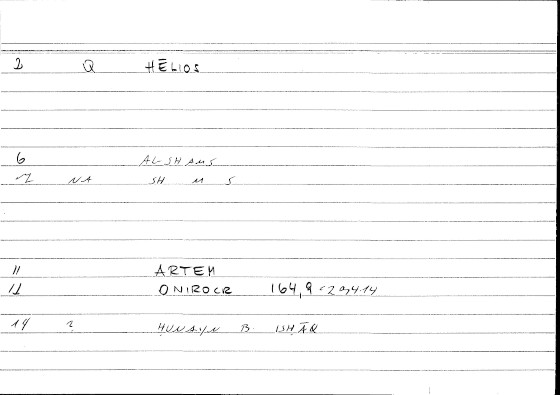 2 Q HĒLIOS
6 AL-SHAMS
7 NA SH M S
11 ARTEM
12 ONIROCR 164,9 = 294,14
14 2 ḤUNAYN B ISḤĀQ